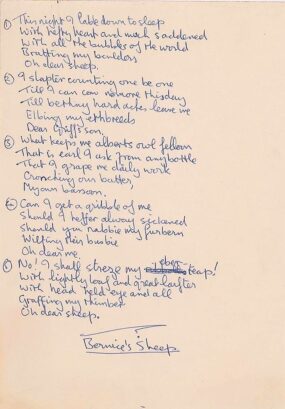 ① This night I lable down to sleep
With hefty heart and much saddened
With all the bubbles of the world
Bratting my boulders
Oh dear sheep.
② I slapter counting one be one
Till I can cow nomore thisday
Till bethny hard aches leave me
Elbing my ethbreeds
Dear Griff's son.
③ What keeps me alberts owl felleen
That is earl I ask from anybottle
That I grape me daily work
Cronching our batter,
My own bassoon.
④ Can I get a gribble of me
Should I heffer alway sickened
should you nabbie my furbern
Wilting their busbie
Oh dear me.
⑤ No! I shall streze my eber teap!
With lightly loaf and great lafter
With head held eye and all
Graffing my rhimber
Oh dear sheep.
?
Bernice's Sheep